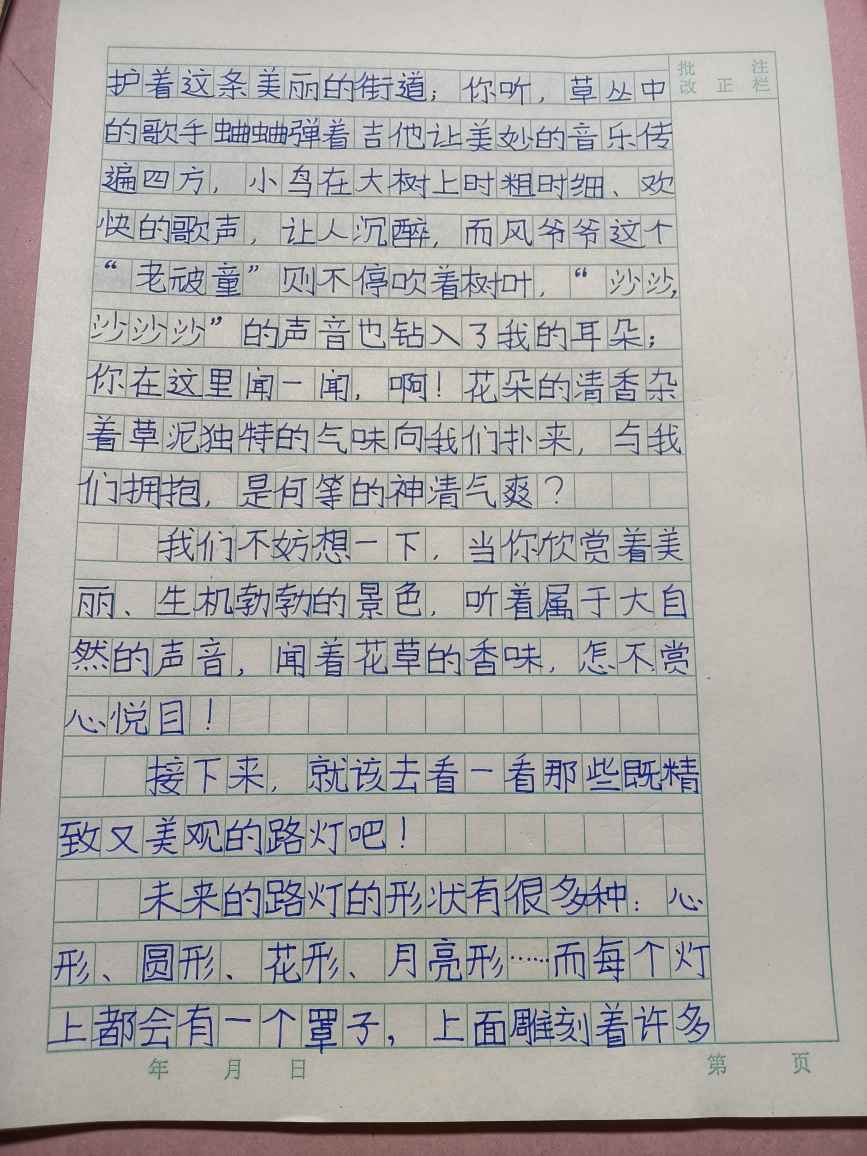 批 注
改 正 栏
护着这条美丽的街道；你听，草丛中
的歌手蛐蛐弹着吉他让美妙的音乐传
遍四方，小鸟在大树上时粗时细、欢
快的歌声，让人沉醉，而风爷爷这个
“老顽童”则不停吹着树叶，“沙沙，
沙沙沙”的声音也钻入了我的耳朵；
你在这里闻一闻，啊！花朵的清香杂
着草泥独特的气味向我们扑来，与我
们拥抱，是何等的神清气爽？
我们不妨想一下，当你欣赏着美
丽、生机勃勃的景色，听着属于大自
然的声音，闻着花草的香味，怎不赏
心悦目！
接下来，就该去看一看那些既精
致又美观的路灯吧！
未来的路灯的形状有很多种：心
形、圆形、花形、月亮形……而每个灯
上都会有一个罩子，上面雕刻着许多
年 月 日 第 页